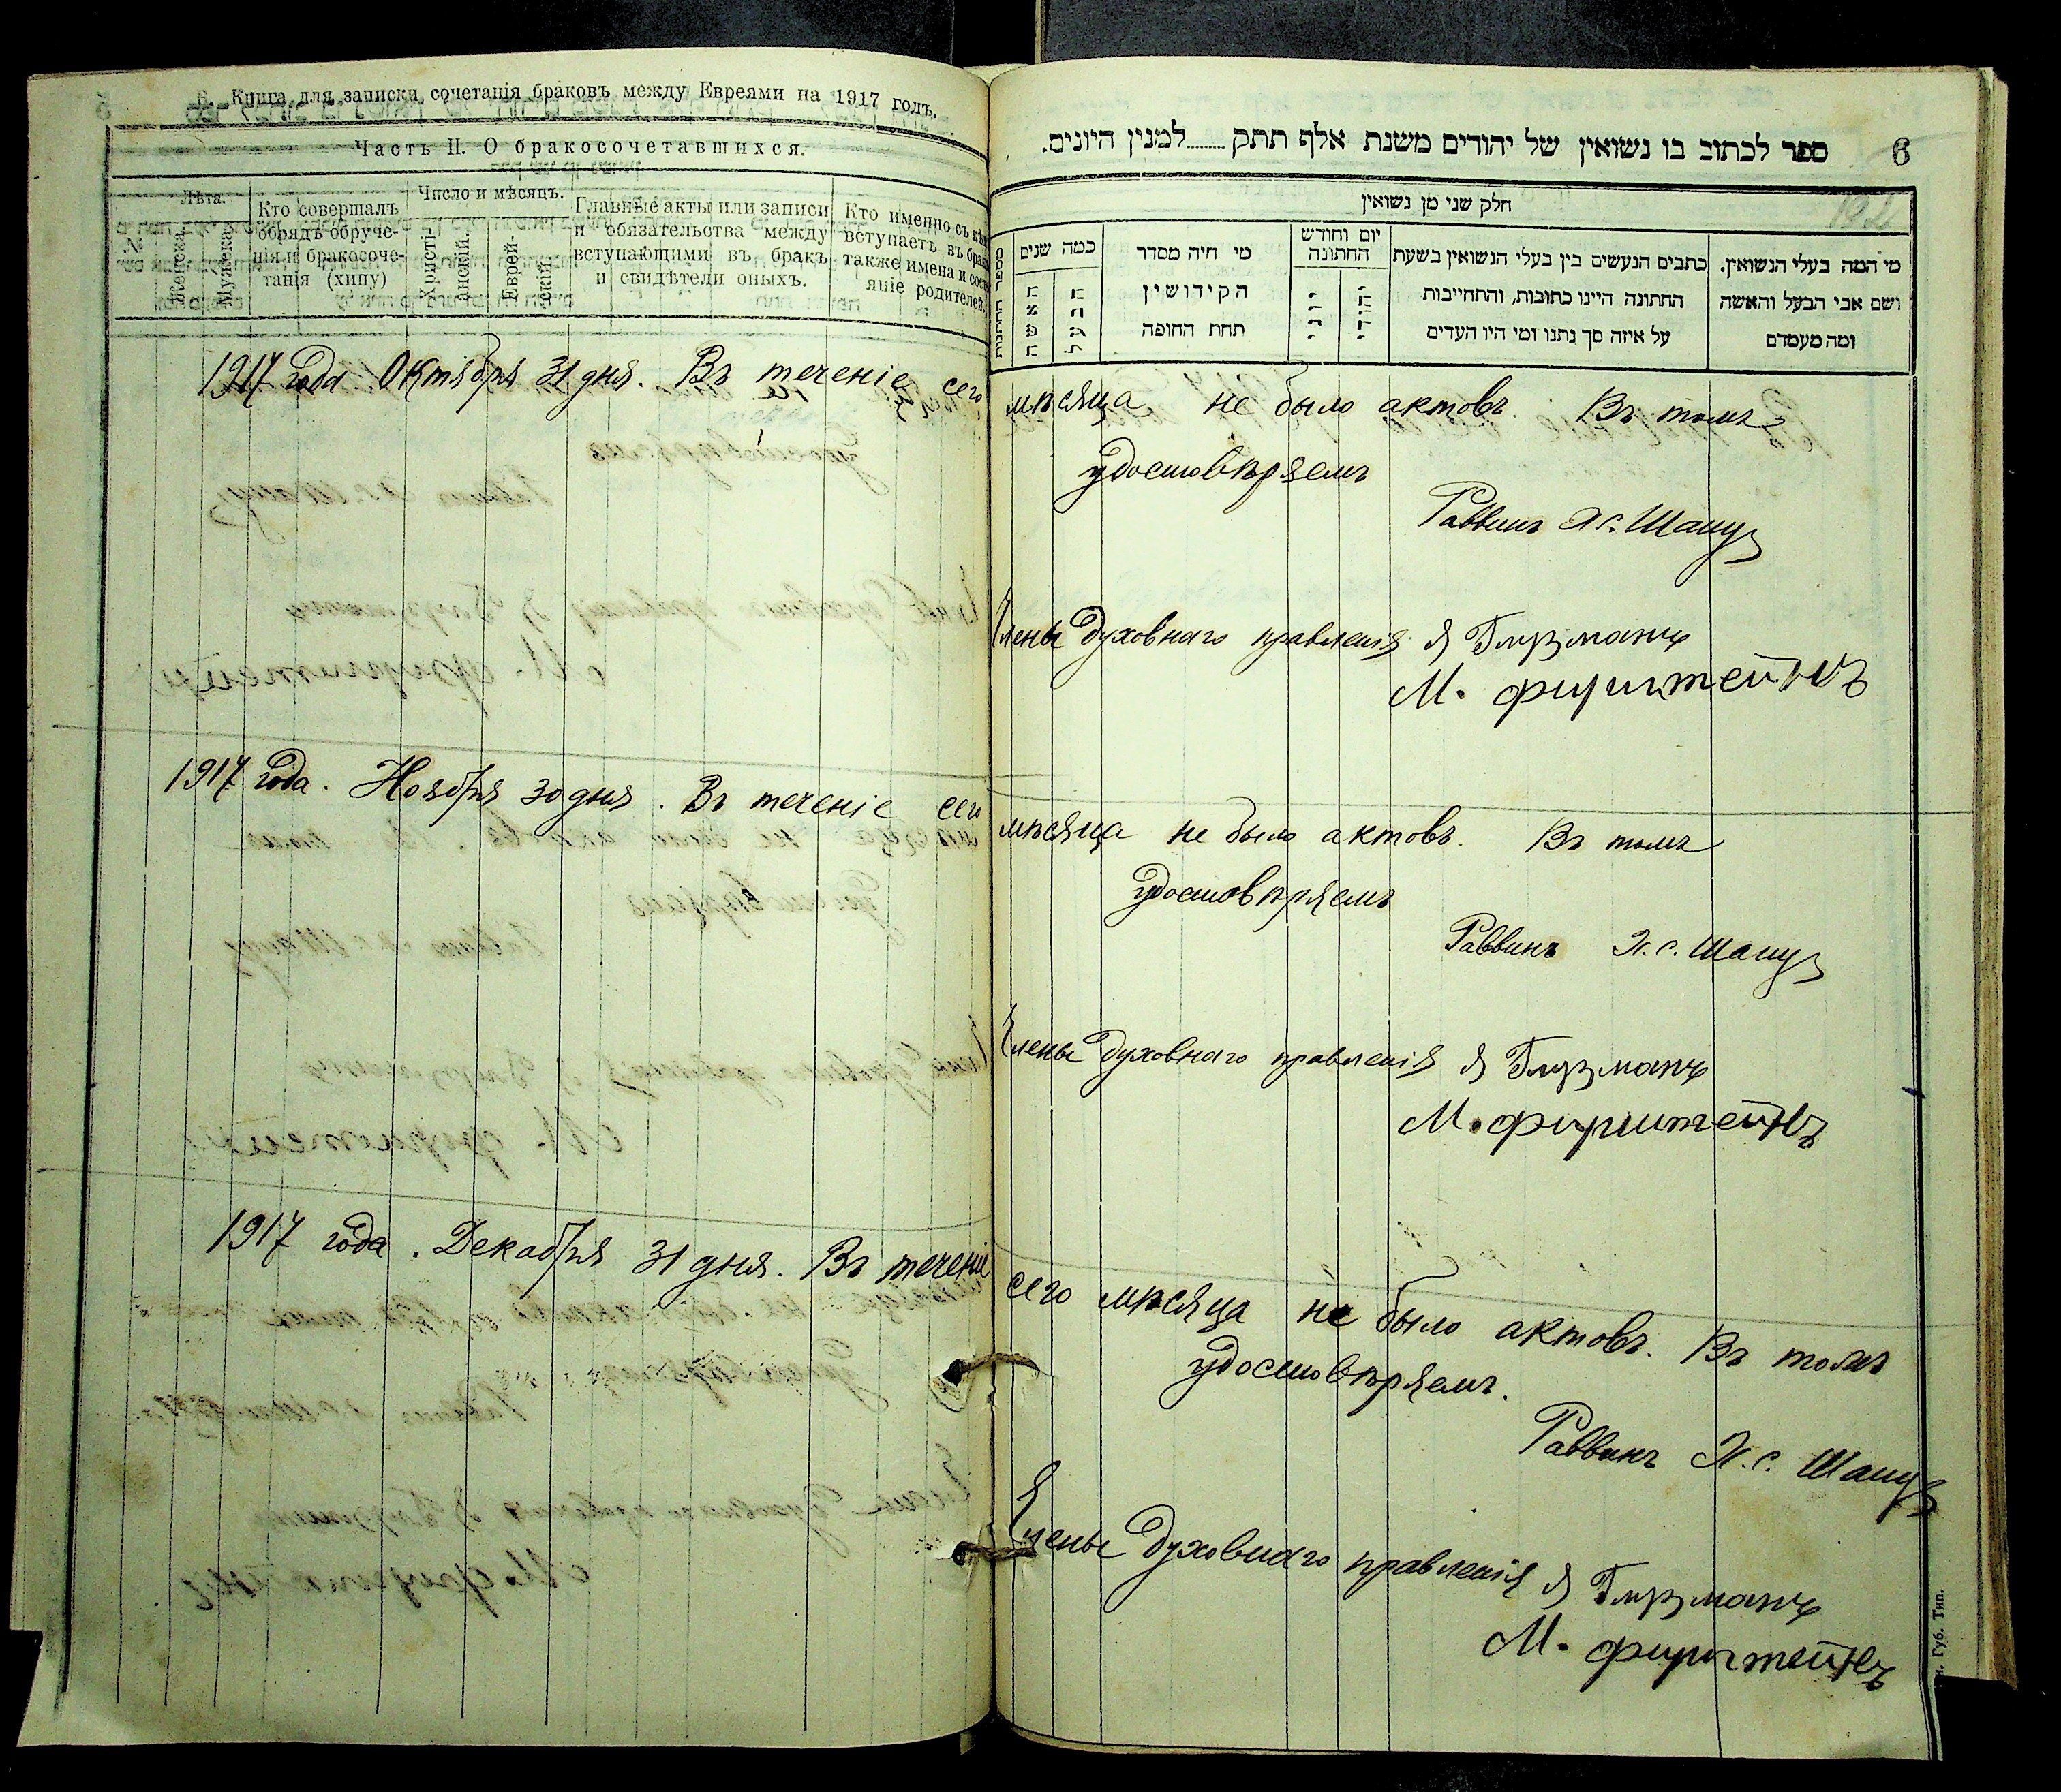 6. Книга для записки сочетанія браковъ между Евреями на 1917 годъ.
Часть II. О бракосочетавшихся.
№
Лѣта.
Женска.
Мужеска.
Кто совершалъ
обрядъ обруче-
нія и бракосоче-
танія (хипу)
Число и мѣсяцъ.
Христі-
анскій.
Еврей-
скій.
Главные акты или записи
и обязательства между
вступающими въ бракъ
и свидѣтели оныхъ.
Кто именно съ кѣмъ
вступаетъ въ бракъ
также имена и сост
яніе родителей.
6
ספר לכתוב בו נשואין של יהודים משנת אלף תתק......למנין היונים.
192
חלק שני מן נשואין
מספר החתונות
כמה שנים
האשה
הבעל
מי היה מסדר
הקידושין
תחת החופה
יום וחודש
החתונה
יוני
יהודי
כתבים הנעשים בין בעלי הנשואין בשעת
החתונה היינו כתובות, והתחייבות
על איזה סך נתנו ומי היו העדים
מי המה בעלי הנשואין.
ושם אבי הבעל והאשה
ומה מעמדם
1917 года Октября 31 дня. Въ теченіе сего мѣсяца не было актовъ. Въ томъ
удостовѣряемъ
Раввинъ Х.С. Шапу
Члены духовнаго правленія Я Глузманъ
М. фирштейнъ
1917 года. Ноября 30 дня. Въ теченіе сего мѣсяца не было актовъ. Въ томъ
удостовѣряемъ
Раввинъ Х.С. Шапу
Члены духовнаго правленія Я Глузманъ
М. фирштейнъ
1917 года. Декабря 31 дня. Въ теченіе сего мѣсяца не было актовъ. Въ томъ
удостовѣряемъ.
Раввинъ Х.С. Шапу
Члены духовнаго правленія Я Глузманъ
М. фирштейнъ
Губ. Тип.